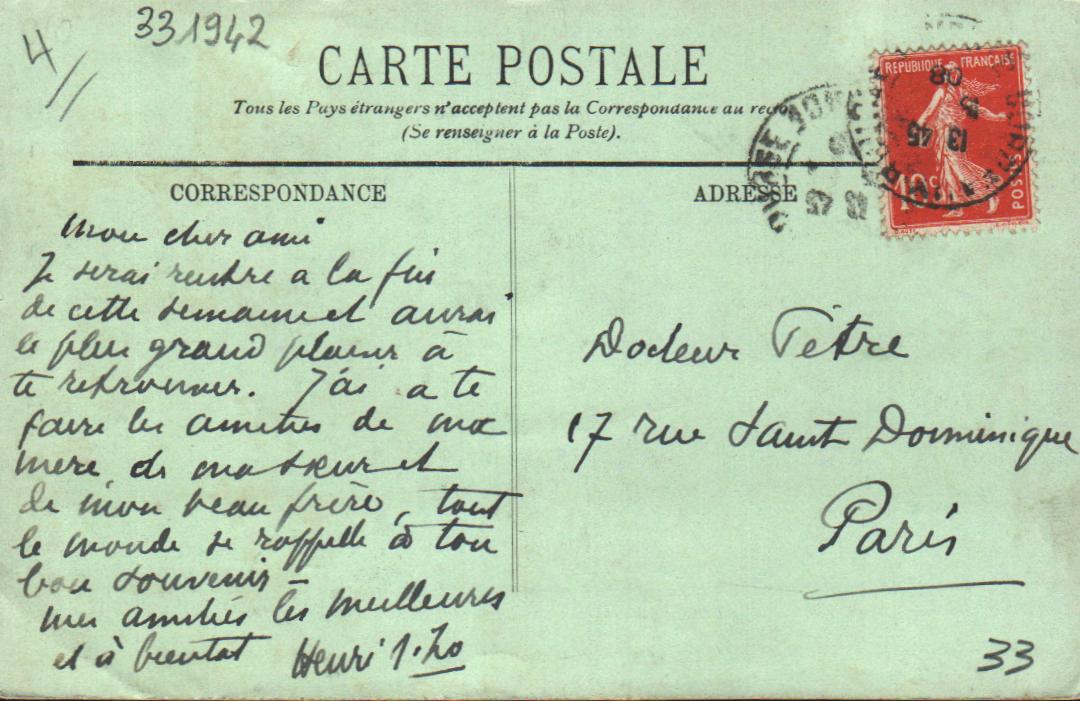 331942
4//
CARTE POSTALE
Tous les Pays étrangers n'acceptent pas la Correspondance au recto
(Se renseigner à la Poste).
REPUBLIQUE FRANÇAISE
10c
POSTES
13 45
08
CORRESPONDANCE
ADRESSE
Mon cher ami
Je serai rentre a la fin
de cette semaine et aurai
le plus grand plaisir à
te retrouver. J'ai a te
faire les amities de ma
mere de ma sœur et
de mon beau frère, tout
le monde se rappelle à ton
bon souvenir –
mes amitiés les meilleures
et à bientot Henri
Docteur Têtre
17 rue Saint Dominique
Paris
33